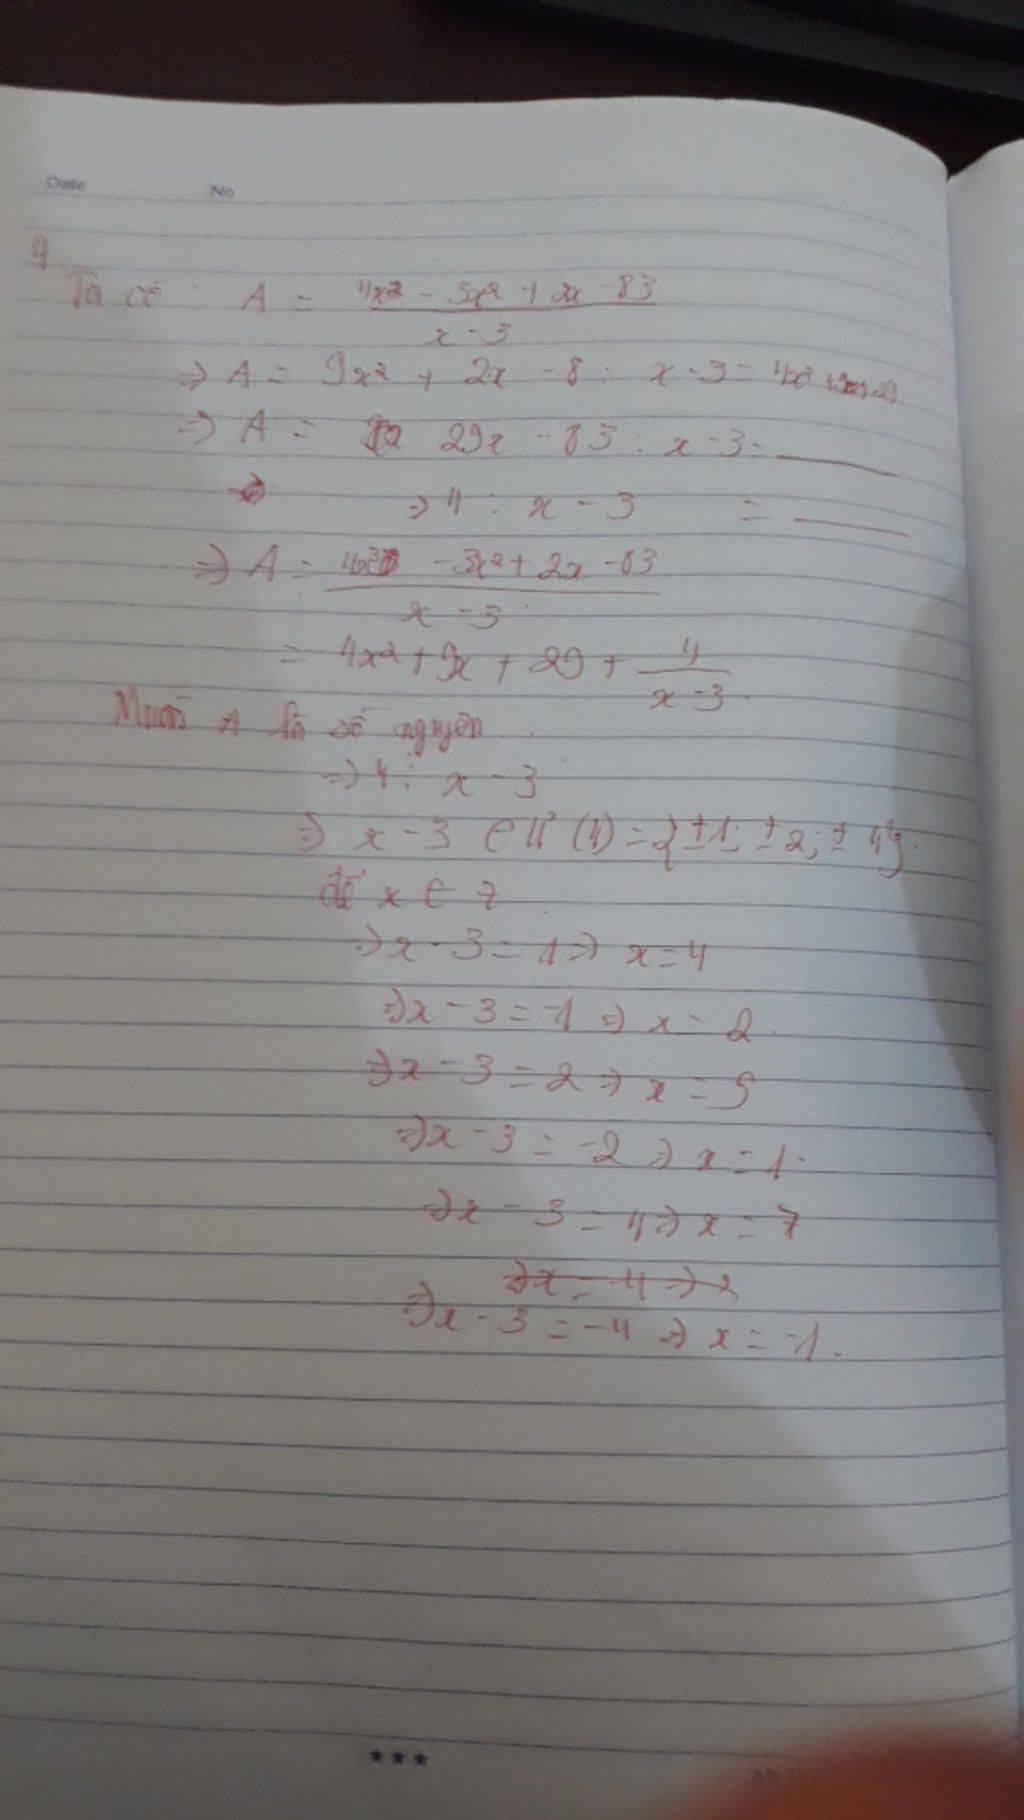 Date No
4
Ta có : A = 4x² - 3x² + 2x - 83
x - 3
⇒ A = 9x² + 2x - 8 : x - 3 = 4x² +
⇒ A = 29x - 83 : x - 3 = ____
⇒ 4 : x - 3 = ____
⇒ A = 4x³ - 3x² + 2x - 83
x - 3
= 4x² + 9x + 29 + 4
x - 3
Muốn A là số nguyên
⇒ 4 ⋮ x - 3
⇒ x - 3 ∈ Ư (4) = {±1; ±2; ±4}
để x ∈ Z
⇒ x - 3 = 1 ⇒ x = 4
⇒ x - 3 = -1 ⇒ x = 2
⇒ x - 3 = 2 ⇒ x = 5
⇒ x - 3 = -2 ⇒ x = 1.
⇒ x - 3 = 4 ⇒ x = 7
⇒ x = -4 ⇒ x
⇒ x - 3 = -4 ⇒ x = -1.
★★★